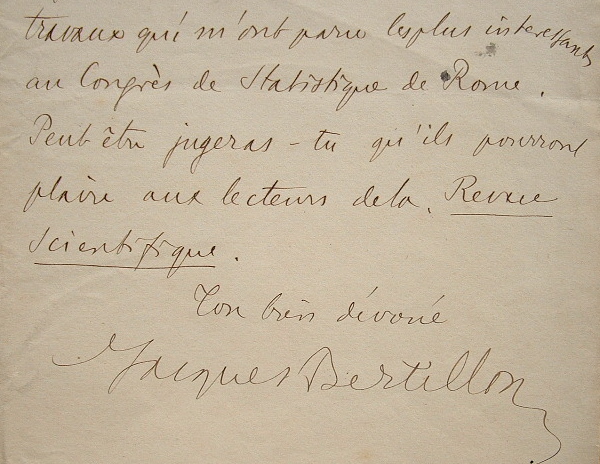 travaux qui m'ont paru les plus interessants
au Congrès de Statistique de Rome.
Peut être jugeras-tu qu'ils pourront
plaire aux lecteurs de la Revue
Scientifique.
Ton bien dévoué
Jacques Bertillon